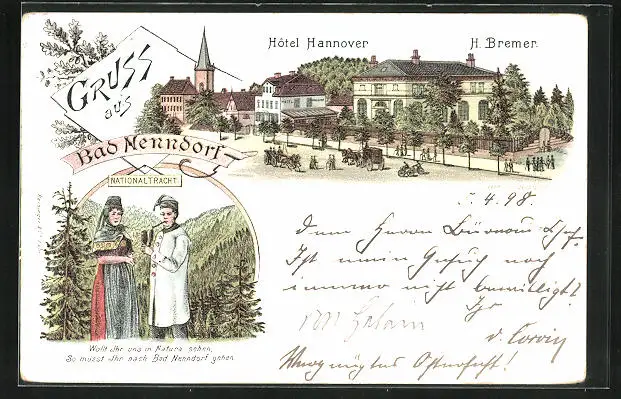 Gruss
aus
Bad Nenndorf
Hôtel Hannover
H. Bremer.
NATIONALTRACHT.
Wollt Ihr uns in Natura sehen,
So müsst Ihr nach Bad Nenndorf gehen.
5.4.98.
Dem Herrn
Ist mein Gesuch noch
immer nicht bewilligt?
Ihr
v. Corvin